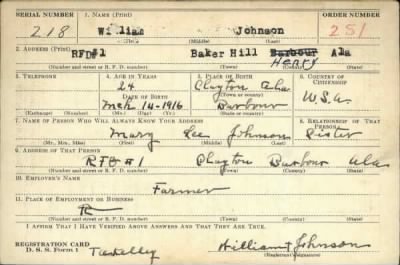 SERIAL NUMBER 1. NAME (Print) ORDER NUMBER
218 William Johnson 251
(First) (Middle) (Last)
2. ADDRESS (Print)
RFD#1 Baker Hill Barbour Ala
Henry
(Number and street or R. F. D. number) (Town) (County) (State)
3. TELEPHONE 4. AGE IN YEARS 5. PLACE OF BIRTH 6. COUNTRY OF CITIZENSHIP
24 Clayton Ala
DATE OF BIRTH (Town or county)
Mch 14-1916 Barbour U.S.A.
(Exchange) (Number) (Mo.) (Day) (Yr.) (State or country)
7. NAME OF PERSON WHO WILL ALWAYS KNOW YOUR ADDRESS 8. RELATIONSHIP OF THAT PERSON
Mary Lee Johnson Sister
(Mr., Mrs., Miss) (First) (Middle) (Last)
9. ADDRESS OF THAT PERSON
RFD #1 Clayton Barbour Ala
(Number and street or R. F. D. number) (Town) (County) (State)
10. EMPLOYER'S NAME
Farmer
11. PLACE OF EMPLOYMENT OR BUSINESS
R
(Number and street or R. F. D. number) (Town) (County) (State)
I AFFIRM THAT I HAVE VERIFIED ABOVE ANSWERS AND THAT THEY ARE TRUE.
REGISTRATION CARD
D. S. S. Form 1 William Johnson
(Registrant's signature)